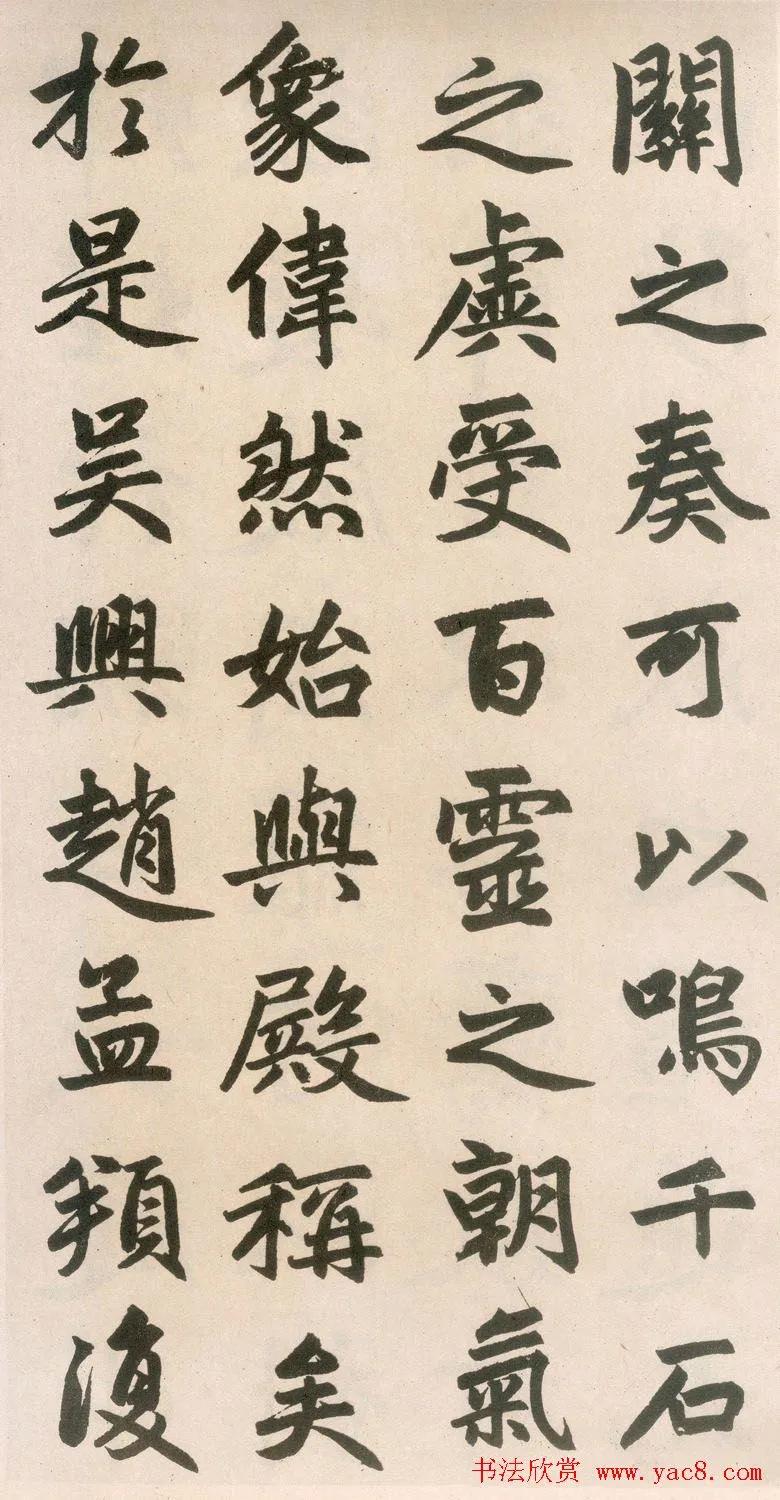 關之奏可以鳴千石
之虡受百靈之朝氣
象偉然始與殿稱矣
於是吳興趙孟頫復
书法欣赏 www.yac8.com